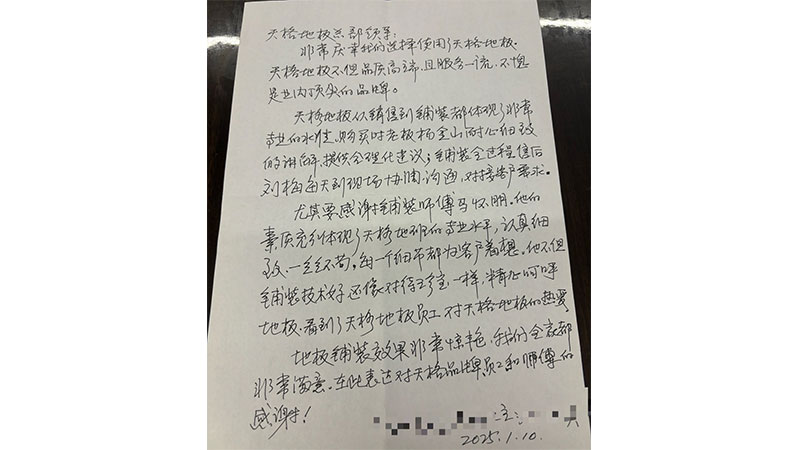 天格地板总部领导：
非常庆幸我们选择使用了天格地板.
天格地板不但品质高端,且服务一流,不愧
是业内顶尖的品牌。
天格地板从销售到铺装都体现了非常
专业的水准,购买时老板杨金山耐心细致
的讲解,提供合理化建议；铺装全过程售后
刘梅每天到现场协调,沟通,对接客户需求.
尤其要感谢铺装师傅马怀明.他的
素质充分体现了天格地板的专业水平,认真细
致,一丝不苟,每一个细节都为客户着想.他不但
铺装技术好还像对待珍宝一样,精心呵呼
地板.看到了天格地板员工对天格地板的热爱
地板铺装效果非常惊艳,我们全家都
非常满意.在此表达对天格品牌,员工和师傅的
感谢!
2025.1.10.